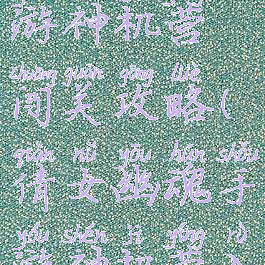 游神机营
chuǎng guān gōng lüè
闯关攻略(
qiàn nǚ yōu hún shǒu
倩女幽魂手
yóu shén jī yíng )
游神机营)